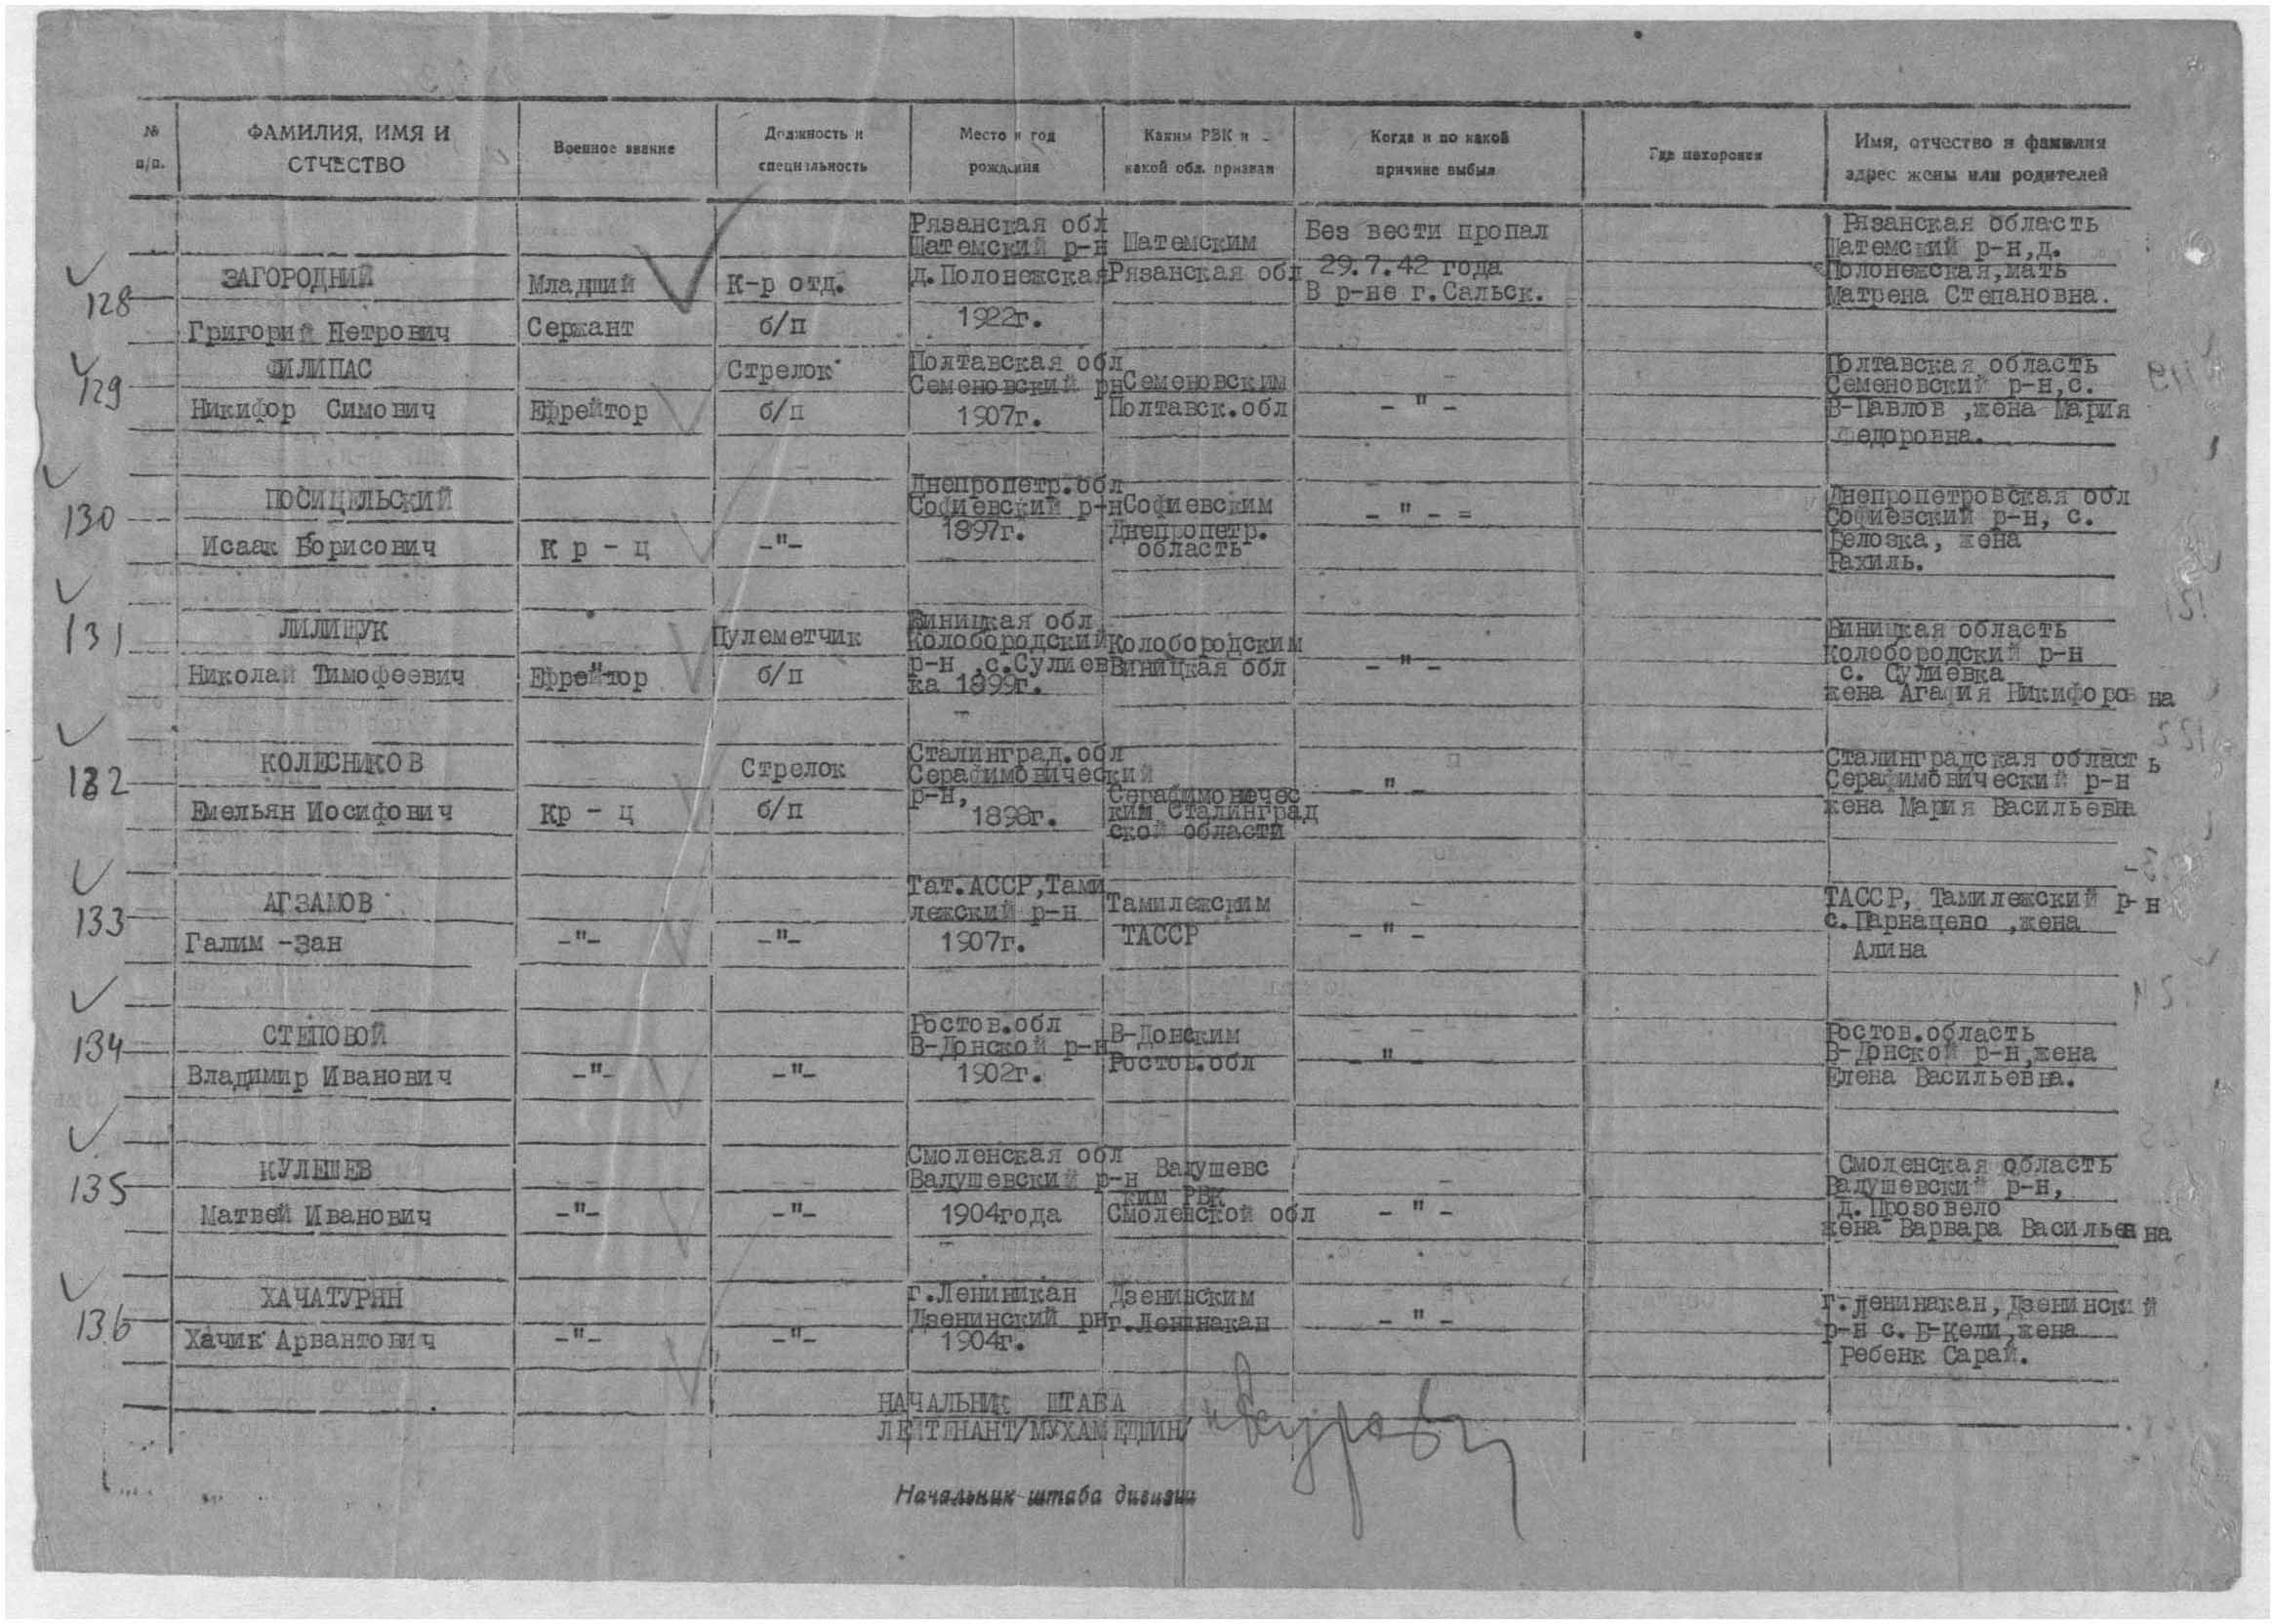 № п/п.
ФАМИЛИЯ, ИМЯ И ОТЧЕСТВО
Военное звание
Должность и специальность
Место и год рождения
Каким РВК и какой обл. призван
Когда и по какой причине выбыл
Где похоронен
Имя, отчество и фамилия адрес жены или родителей
128
ЗАГОРОДНИЙ
Григорий Петрович
Младший
Сержант
К-р отд.
б/п
Рязанская обл
Шатемский р-н
д.Полонежская
1922г.
Шатемским
Рязанская обл
Без вести пропал
29.7.42 года
В р-не г.Сальск.
Рязанская область
Шатемский р-н,д.
Полонежская,мать
Матрена Степановна.
129
ФИЛИПАС
Никифор Симович
Ефрейтор
Стрелок
б/п
Полтавская обл
Семеновский рн
1907г.
Семеновским
Полтавск.обл
- " -
Полтавская область
Семеновский р-н,с.
В-Павлов ,жена Мария
Федоровна.
130
ПОСИЦЕЛЬСКИЙ
Исаак Борисович
Кр - ц
-"-
Днепропетр.обл
Софиевский р-н
1897г.
Софиевским
Днепропетр.
область
- " - =
Днепропетровская обл
Софиевский р-н, с.
Белозка, жена
Рахиль.
131
ЛИЛИЩУК
Николай Тимофеевич
Ефрейтор
Пулеметчик
б/п
Виницкая обл
Колобородский
р-н ,с.Сулиев
ка 1899г.
Колобородским
Виницкая обл
- " -
Виницкая область
Колобородский р-н
с. Сулиевка
жена Агафия Никифоровна
132
КОЛЕСНИКОВ
Емельян Иосифович
Кр - ц
Стрелок
б/п
Сталинград.обл
Серафимовический
р-н,
1898г.
Серафимовичес
ким Сталинград
ской области
- " -
Сталинградская область
Серафимовический р-н
жена Мария Васильевна
133
АГЗАМОВ
Галим -Зан
-"-
-"-
Тат.АССР,Тами
лежский р-н
1907г.
Тамилежским
ТАССР
- " -
ТАССР, Тамилежский р-н
с.Парнацево ,жена
Алина
134
СТЕПОВОЙ
Владимир Иванович
-"-
-"-
Ростов.обл
В-Донской р-н
1902г.
В-Донским
Ростов.обл
- " -
Ростов.область
В-Донской р-н,жена
Елена Васильевна.
135
КУЛЕШЕВ
Матвей Иванович
-"-
-"-
Смоленская обл
Валушевский р-н
1904года
Валушевс
ким РВК
Смоленской обл
- " -
Смоленская область
Валушевский р-н,
д.Прозовело
жена Варвара Васильевна
136
ХАЧАТУРЯН
Хачик Арвантович
-"-
-"-
г.Лениникан
Дзенинский рн
1904г.
Дзенинским
г.Ленинакан
- " -
г.Ленинакан,Дзенинский
р-н с. Б-Кели,жена
Ребенк Сарай.
НАЧАЛЬНИК ШТАБА
ЛЕЙТЕНАНТ/МУХАМЕДШИН/
Начальник штаба дивизии